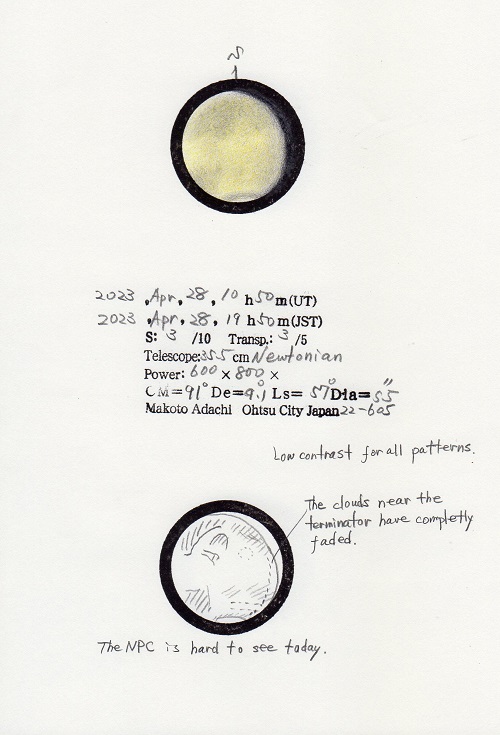 S
2023 ,Apr, 28, 10 h 50 m(UT)
2023 ,Apr, 28, 19 h 50 m(JST)
S: 3 /10 Transp.: 3 /5
Telescope:355 cm Newtonian
Power: 600 × 800 ×
CM=91° De=9.1° Ls= 57° Dia=5.5"
Makoto Adachi Ohtsu City Japan 22-605
Low contrast for all patterns.
The clouds near the
terminator have completly
faded.
The NPC is hard to see today.